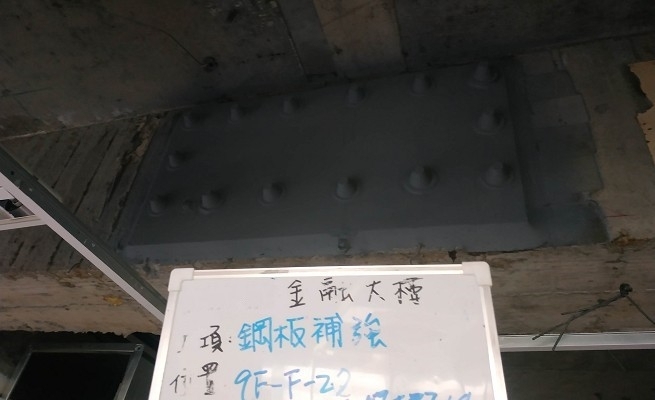 金融大樓
項:鋼板補強
位置 9F-F-22